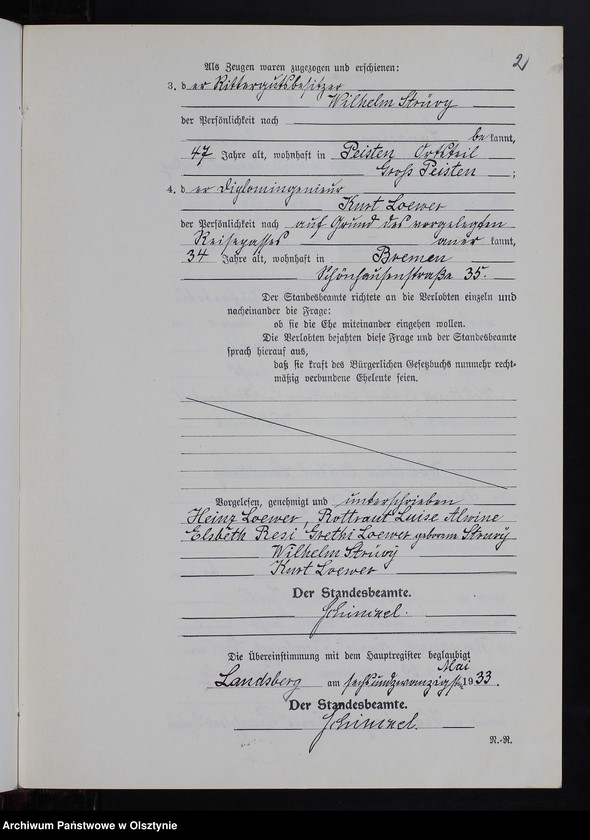 2
Als Zeugen waren zugezogen und erschienen:
3. der Rittergutsbesitzer
Wilhelm Strüvy
der Persönlichkeit nach
bekannt,
47 Jahre alt, wohnhaft in Peisten Ortsteil
Groß Peisten ;
4. der Diplomingenieur
Kurt Loewer
der Persönlichkeit nach auf Grund des vorgelegten
Reisepasses anerkannt,
34 Jahre alt, wohnhaft in Bremen
Schönhausenstraße 35.
Der Standesbeamte richtete an die Verlobten einzeln und
nacheinander die Frage:
ob sie die Ehe miteinander eingehen wollen.
Die Verlobten bejahten diese Frage und der Standesbeamte
sprach hierauf aus,
daß sie kraft des Bürgerlichen Gesetzbuchs nunmehr recht-
mäßig verbundene Eheleute seien.
Vorgelesen, genehmigt und unterschrieben
Heinz Loewer, Rottraut Luise Alwine
Elsbeth Resi Grethi Loewer geborene Strüvy
Wilhelm Strüvy
Kurt Loewer
Der Standesbeamte.
Schimmel.
Die Übereinstimmung mit dem Hauptregister beglaubigt
Landsberg am sechsundzwanzigsten Mai 1933.
Der Standesbeamte.
Schimmel.
R.-R.
Archiwum Państwowe w Olsztynie